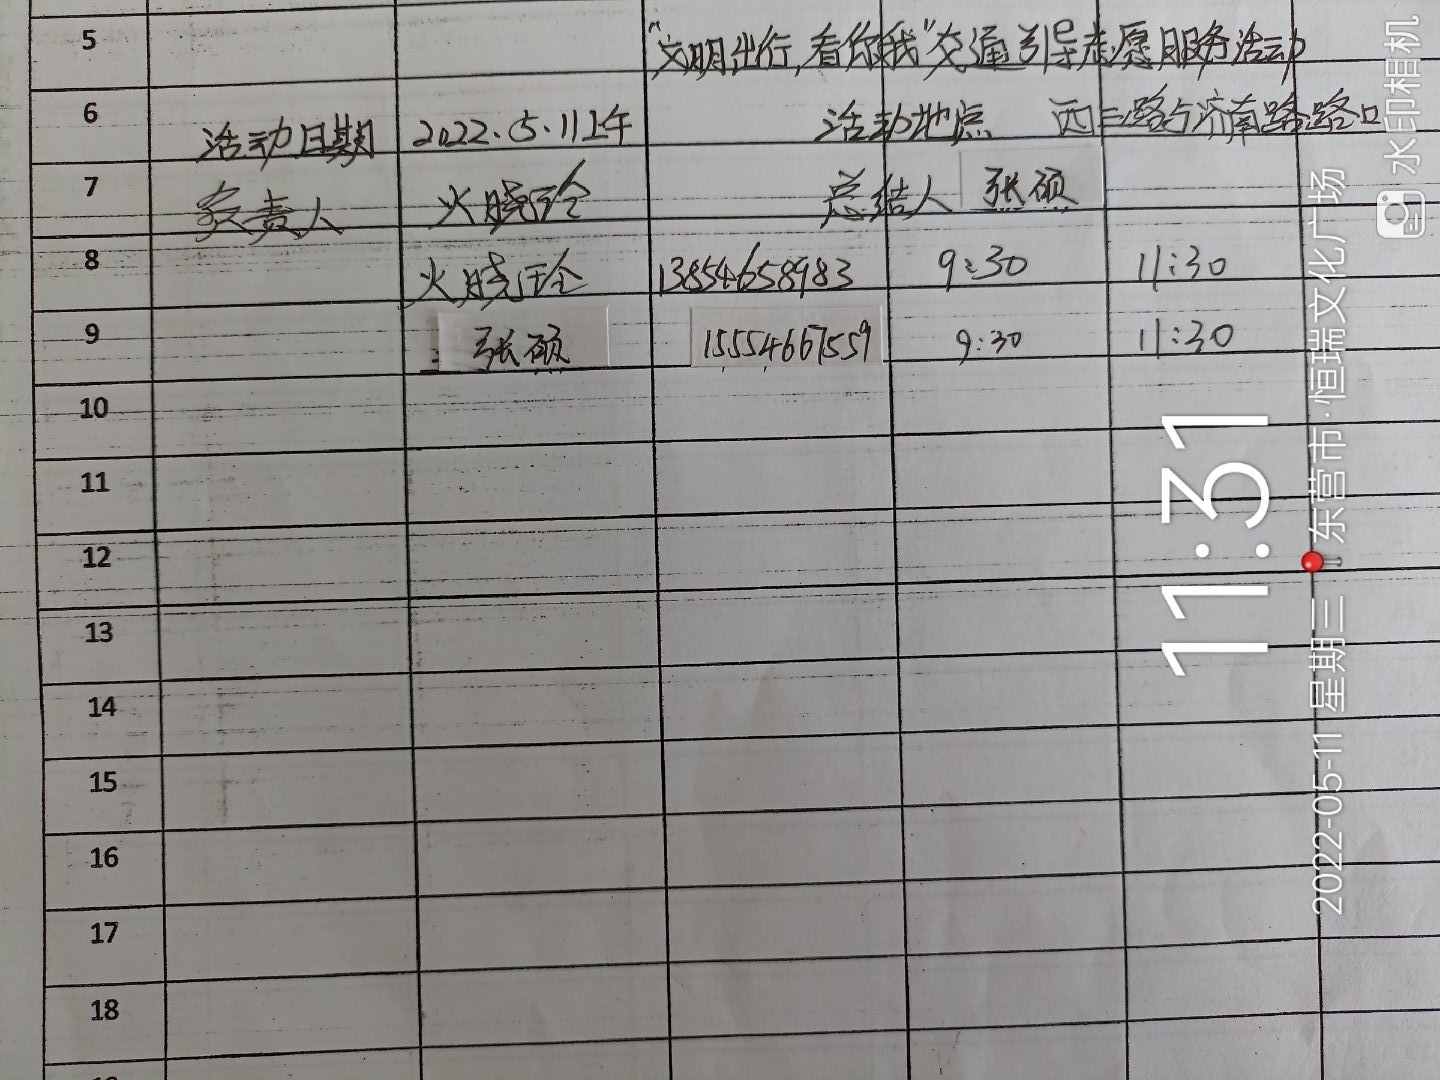 5 "文明出行,看你我"交通引导志愿服务活动
6 活动日期 2022.5.11上午 活动地点 西三路与济南路路口
7 负责人 火晓玲 总结人 张硕
8 火晓玲 13854658983 9:30 11:30
9 张硕 15554667559 9:30 11:30
10
11
12
13
14
15
16
17
18
11:31
2022-05-11 星期三 东营市·恒瑞文化广场
水印相机